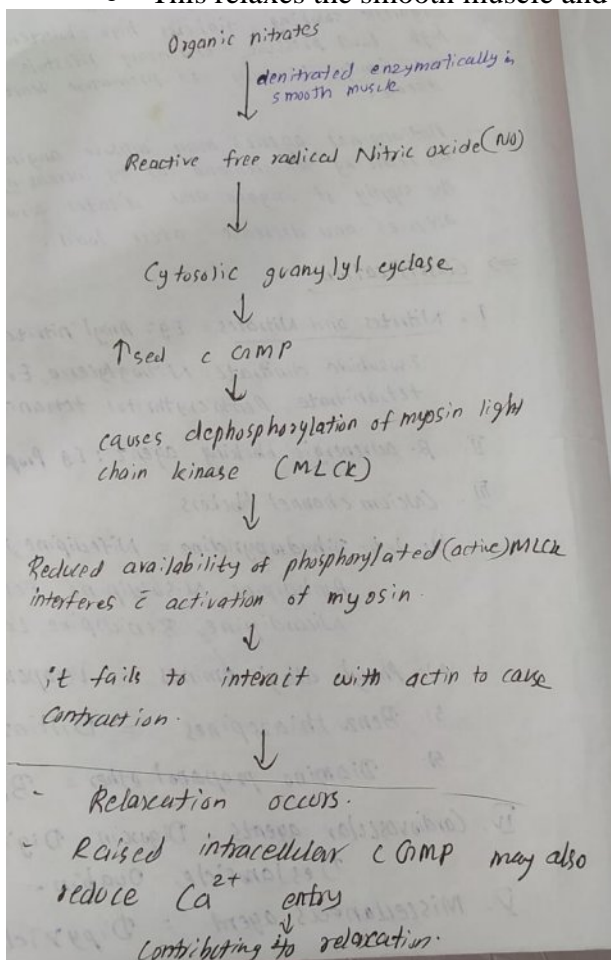 This relaxes the smooth muscle and
Organic nitrates
denitrated enzymatically in
smooth muscle
Reactive free radical Nitric oxide (NO)
Cytosolic guanylyl cyclase
↑sed c GMP
causes dephosphorylation of myosin light
chain kinase (MLCK)
Reduced availability of phosphorylated (active) MLCK
interferes c̄ activation of myosin.
it fails to interact with actin to cause
contraction.
- Relaxation occurs.
- Raised intracellular c GMP may also
reduce Ca²⁺ entry
contributing to relaxation.